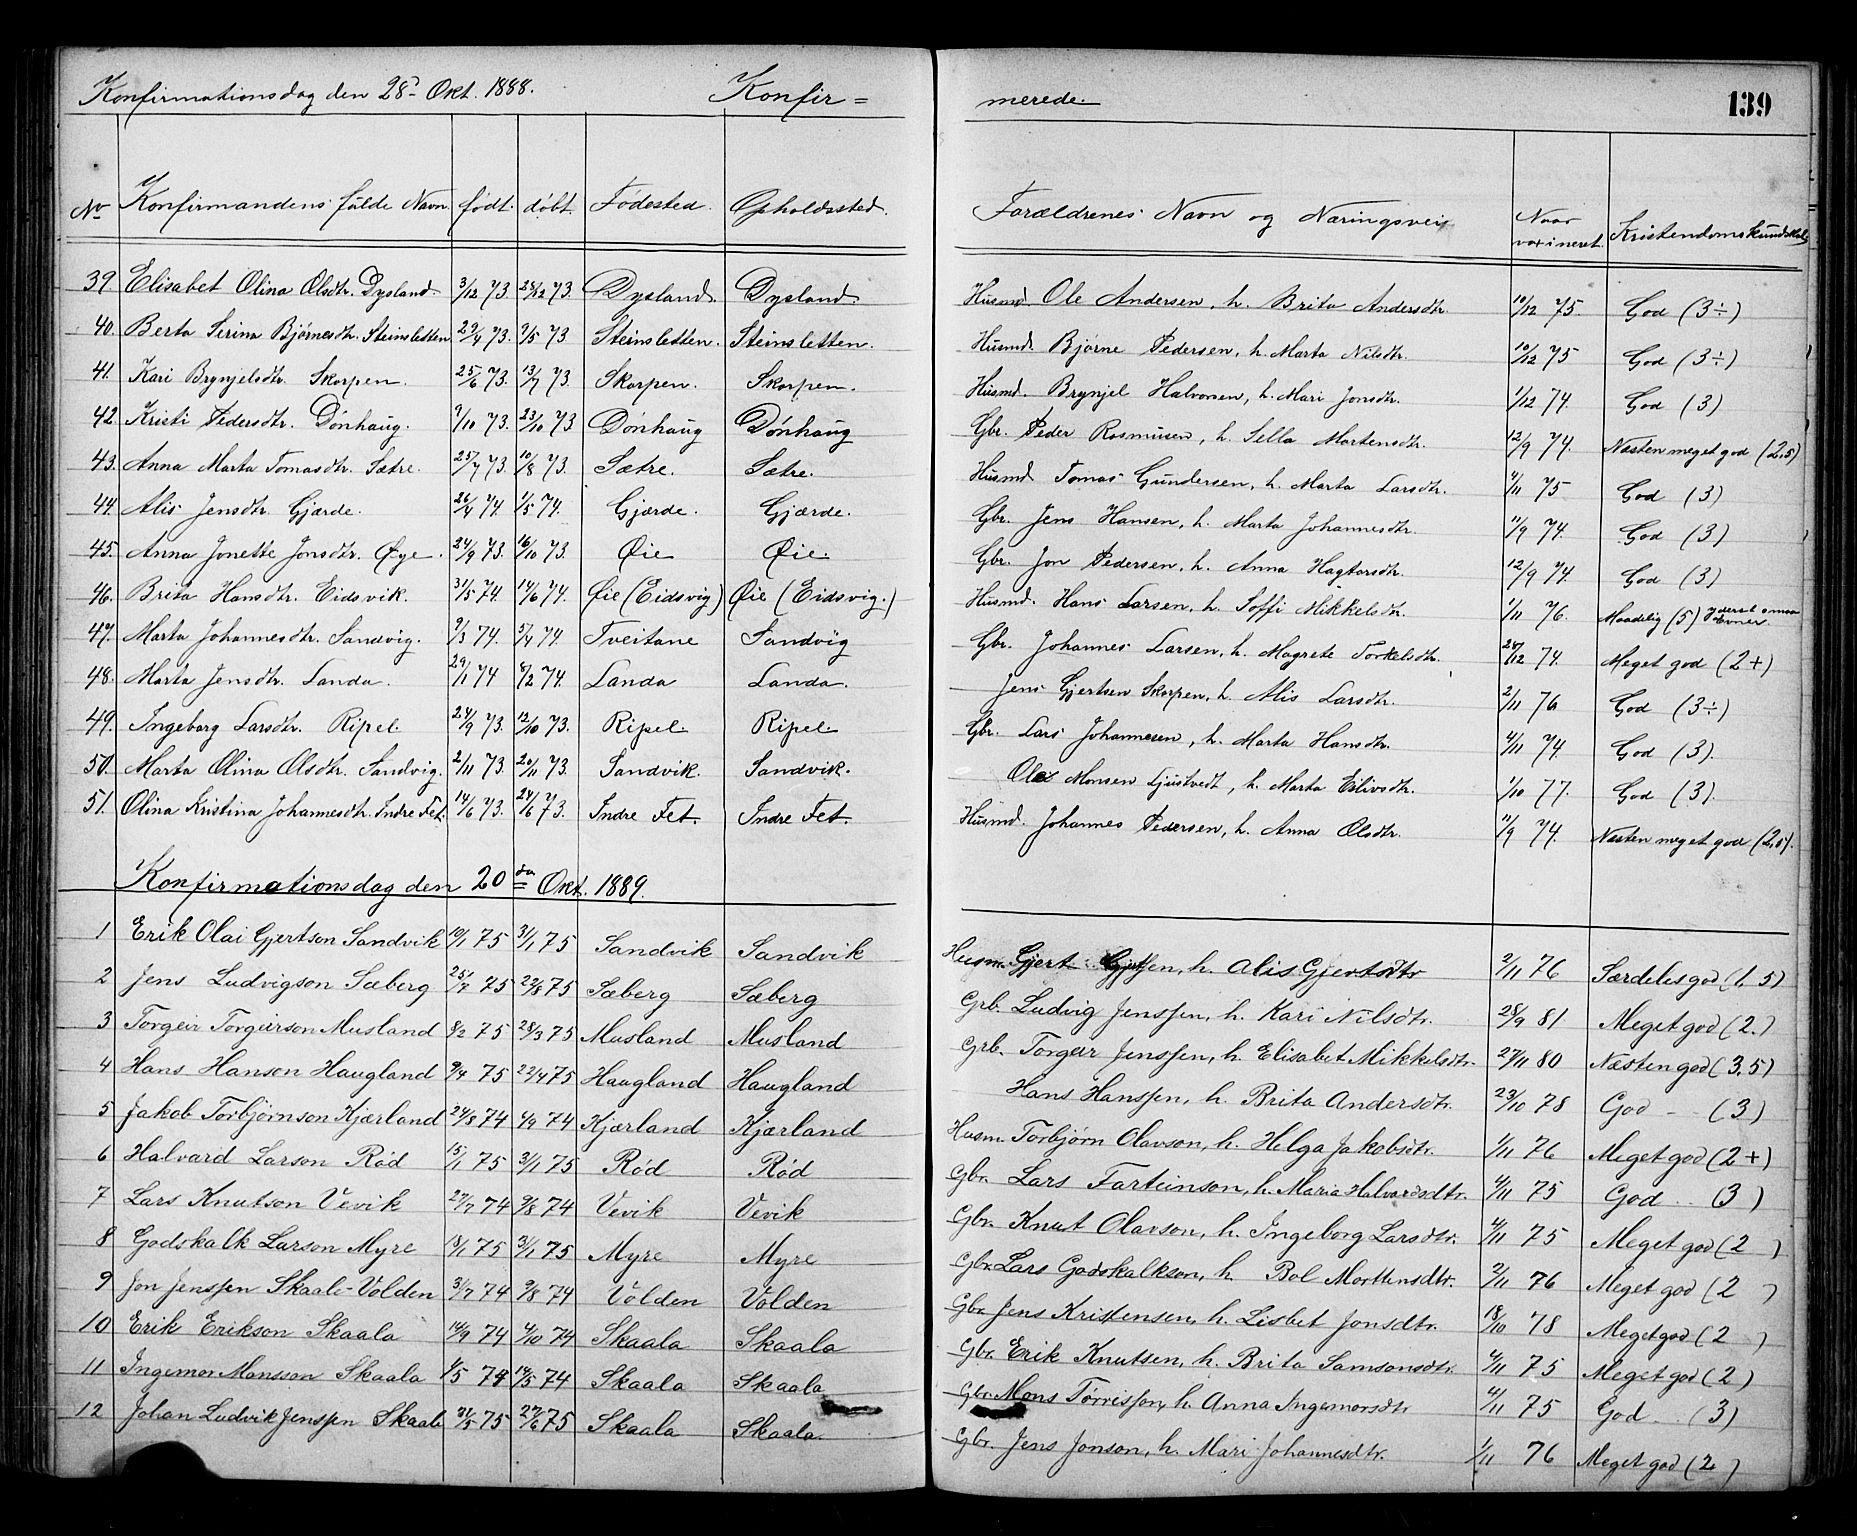 Konfirmationsdag den 28d Okt. 1888. Konfir= merede. 139
No Konfirmandens fulde Navn. født. døbt. Fødested. Opholdssted. Forældrenes Navn og Næringsvei Naar vaxineret. Kristendomskundskab
39 Elisabet Olina Olsdtr. Dysland. 3/12 73. 28/12 73. Dysland. Dysland Husmd. Ole Andersen, h. Brita Andersdtr. 10/12 75. God (3÷)
40. Berta Serina Bjørnesdtr. Steinsletten 29/4 73. 9/5 73 Steinsletten. Steinsletten. Husmd. Bjørne Pedersen, h. Marta Nilsdtr. 10/12 75 God (3÷)
41. Kari Brynjelsdtr. Skorpen. 25/6 73. 13/7 73. Skorpen. Skorpen. Husmd. Brynjel Halvorsen, h. Mari Jonsdtr. 1/12 74. God (3)
42. Kristi Pedersdtr. Dønhaug. 9/10 73. 23/10 73 Dønhaug Dønhaug Gbr. Peder Rasmusen, h. Sella Martensdtr. 12/9 74. Næsten meget god (2,5)
43. Anna Marta Tomasdtr. Sætre. 25/7 73. 10/8 73. Sætre. Sætre. Husmd. Tomas Gundersen, h. Marta Larsdtr. 4/11 75 God (3)
44. Alis Jensdtr. Gjærde. 26/4 74. 1/5 74. Gjærde. Gjærde. Gbr. Jens Hansen, h. Marta Johannesdtr. 11/9 74. God (3)
45. Anna Jonette Jonsdtr. Øye. 24/9 73. 16/10 73. Øie Øie. Gbr. Jon Pedersen, h. Anna Hagtorsdtr. 12/9 74. God (3)
46. Brita Hansdtr. Eidsvik. 31/5 74. 14/6 74. Øie (Eidsvig) Øie (Eidsvig.) Husmd. Hans Larsen, h. Soffi Mikkelsdtr. 1/11 76. Maadelig (5) Yderst smaa Evner.
47. Marta Johannesdtr. Sandvig. 9/3 74. 5/4 74. Tveitane Sandvig Gbr. Johannes Larsen, h. Magrete Torkelsdtr. 28/12 74. Meget god (2+)
48. Marta Jensdtr. Landa. 29/1 74 8/2 74. Landa Landa. Jens Gjertsen Skorpen, h. Alis Larsdtr. 2/11 76 God (3÷)
49. Ingeborg Larsdtr. Ripel. 24/9 73. 12/10 73. Ripel Ripel Gbr. Lars Johannesen, h. Marta Hansdtr. 4/11 74. God (3).
50. Marta Olina Olsdtr. Sandvig. 2/11 73. 20/11 73. Sandvik. Sandvik. Ole Monsen Ljustvedt, h. Marta Eilivsdtr. 1/10 77. God (3).
51. Olina Kristina Johannesdtr. Indre Fet. 14/6 73. 24/6 73. Indre Fet. Indre Fet. Husmd. Johannes Pedersen, h. Anna Olsdtr. 11/9 74. Næsten meget god (2,5).
Konfirmationsdag den 20de Okt. 1889.
1 Erik Olai Gjertson Sandvik 10/1 75 31/1 75 Sandvik Sandvik Husm. Gjert h. Alis Gjertsdtr 2/11 76 Særdeles god (1.5)
2 Jens Ludvigson Sæberg 25/7 75 22/8 75 Sæberg Sæberg Grb. Ludvig Jenssen, h. Kari Nilsdtr. 28/9 81. Meget god (2.)
3 Torgeir Torgeirson Musland 8/2 75 28/3 75 Musland Musland Grb. Torgeir Jenssen, h. Elisabet Mikkelsdtr. 27/11 80 Næsten god (3.5)
4 Hans Hanson Haugland 9/4 75 22/4 75 Haugland Haugland Hans Hanssen, h. Brita Andersdtr. 23/10 78 God - (3)
5 Jakob Torbjørnson Kjærland 24/8 74 4/9 74 Kjærland Kjærland Husm. Torbjørn Olavson, h. Helga Jakobsdtr. 1/11 76 Meget god (2+)
6 Halvard Larson Rød 15/1 75 31/1 75 Rød Rød Gbr. Lars Farteinson, h. Maria Halvardsdtr. 4/11 75 God .. (3)
7 Lars Knutson Vevik 27/7 74 9/8 74 Vevik Vevik Gbr. Knut Olavson, h. Ingeborg Larsdtr. 4/11 75 Meget god (2 )
8 Godskalk Larson Myre 18/1 75 31/1 75 Myre Myre Gbr. Lars Godskalkson, h. Bol Mortensdtr. 2/11 76 Meget god (2 )
9 Jon Jenssen Skaale-Volden 31/7 74 9/8 74 Volden Volden Gbr. Jens Kristensen, h. Lisbet Jonsdtr. 18/10 78 Meget god (2 )
10 Erik Erikson Skaala 14/9 74 4/10 74 Skaala Skaala Gbr. Erik Knutsen, h. Brita Samsonsdtr. 4/11 75 Meget god (2)
11 Ingemor Monsson Skaala 1/5 74 14/5 74 Skaala Skaala Gbr. Mons Tørrisson, h. Anna Ingemorsdtr 4/11 75 God .. (3)
12 Johan Ludvik Jenssen Skaala 31/5 75 27/6 75 Skaala Skaala. Gbr. Jens Jonson, h. Mari Johannesdtr. 1/11 76 Meget god (2 )